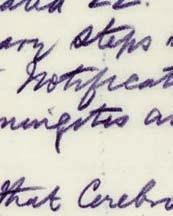 22.
steps
Notificat
ningitis a
that Cerebro